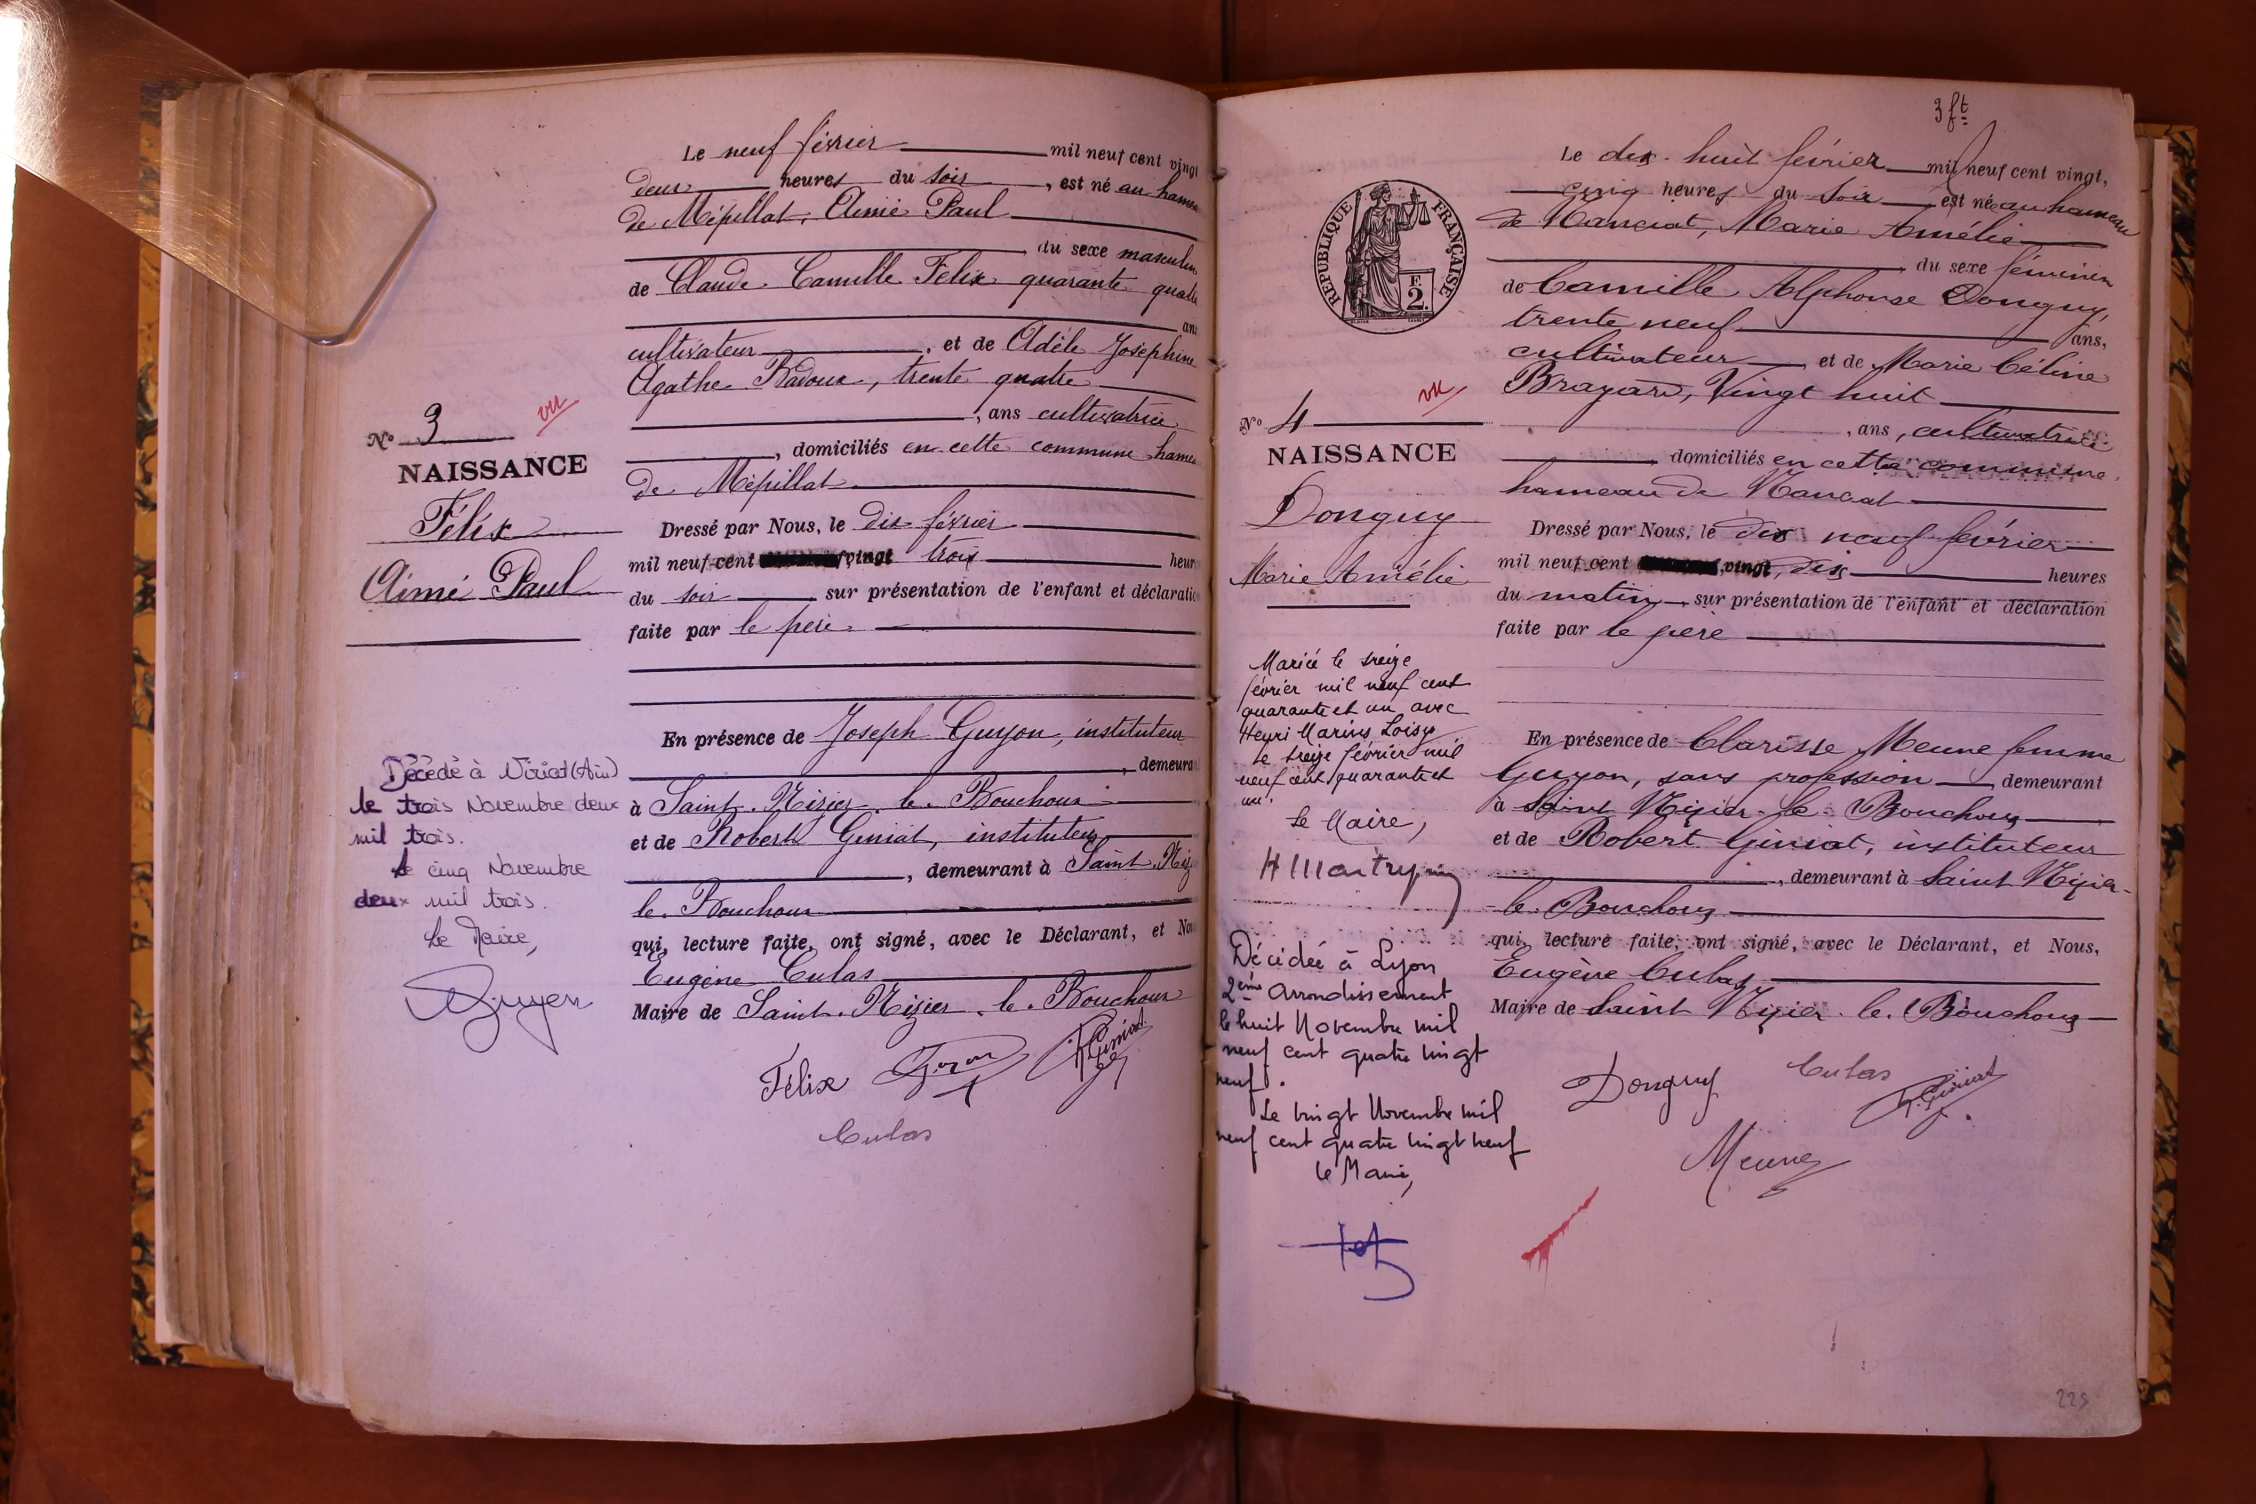 Le neuf février mil neuf cent vingt
deux heures du soir, est né au hameau
de Mépillat, Aimé Paul
du sexe masculin
de Claude Camille Félix quarante quatre
ans
cultivateur, et de Adèle Joséphine
Agathe Radoux, trente quatre
, ans cultivatrice
, domiciliés en cette commune hameau
de Mépillat
Dressé par Nous, le dix février
mil neuf cent vingt trois heures
du soir sur présentation de l'enfant et déclaration
faite par le père
En présence de Joseph Guyon, instituteur
, demeurant
à Saint-Nizier-le-Bouchoux
et de Robert Giniat, instituteur
, demeurant à Saint Nizier
le Bouchoux
qui, lecture faite, ont signé, avec le Déclarant, et Nous
Eugène Culas
Maire de Saint-Nizier-le-Bouchoux
Félix Guyon R Giniat
Culas
N° 3
vu
NAISSANCE
Félix
Aimé Paul
Décédé à Viriat (Ain)
le trois Novembre deux
mil trois.
Le cinq Novembre
deux mil trois.
Le Maire,
3 ft
Le dix-huit février mil neuf cent vingt,
cinq heures du soir est né au hameau
de Manciat, Marie Amélie
du sexe féminin
de Camille Alphonse Donguy,
trente neuf ans,
cultivateur et de Marie Céline
Brayard, Vingt huit
, ans, cultivatrice
domiciliés en cette commune,
hameau de Manciat
Dressé par Nous, le dix neuf février
mil neuf cent vingt, dix heures
du matin, sur présentation de l'enfant et déclaration
faite par le père
En présence de Clarisse Meune femme
Guyon, sans profession demeurant
à Saint Nizier-le-Bouchoux
et de Robert Giniat, instituteur
, demeurant à Saint Nizier-
le-Bouchoux
qui, lecture faite, ont signé, avec le Déclarant, et Nous,
Eugène Culas
Maire de Saint Nizier-le-Bouchoux
Donguy Culas R. Giniat
Meune
RÉPUBLIQUE FRANÇAISE
F.
2
N° 4
vu
NAISSANCE
Donguy
Marie Amélie
Mariée le treize
février mil neuf cent
quarante et un avec
Henri Marius Loisy
Le treize février mil
neuf cent quarante et
un.
Le Maire,
Décédée à Lyon
2ème Arrondissement
le huit Novembre mil
neuf cent quatre vingt
neuf.
Le vingt Novembre mil
neuf cent quatre vingt neuf
Le Maire,
225